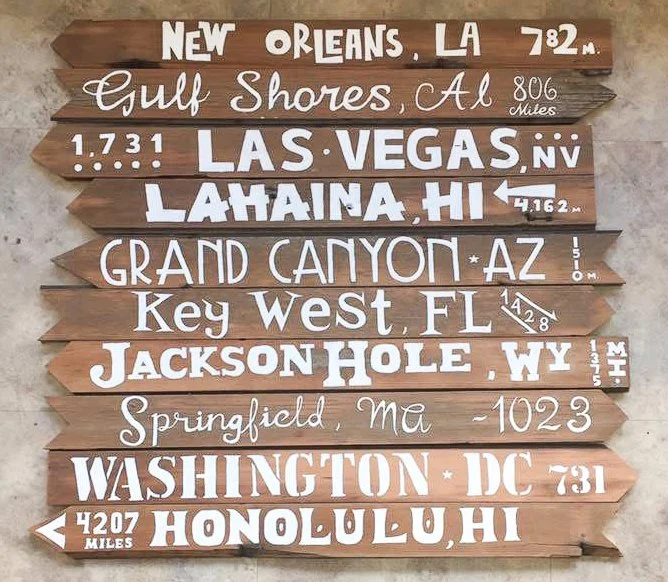 NEW ORLEANS, LA 782 M.
Gulf Shores, Al 806 Miles
1,731 LAS·VEGAS, NV
LAHAINA, HI 4,162 M
GRAND CANYON ★ AZ 1510 M.
Key West, FL 1428
JACKSON HOLE, WY 1375 MI.
Springfield, MA ~1023
WASHINGTON ★ DC 731
4207 MILES HONOLULU, HI